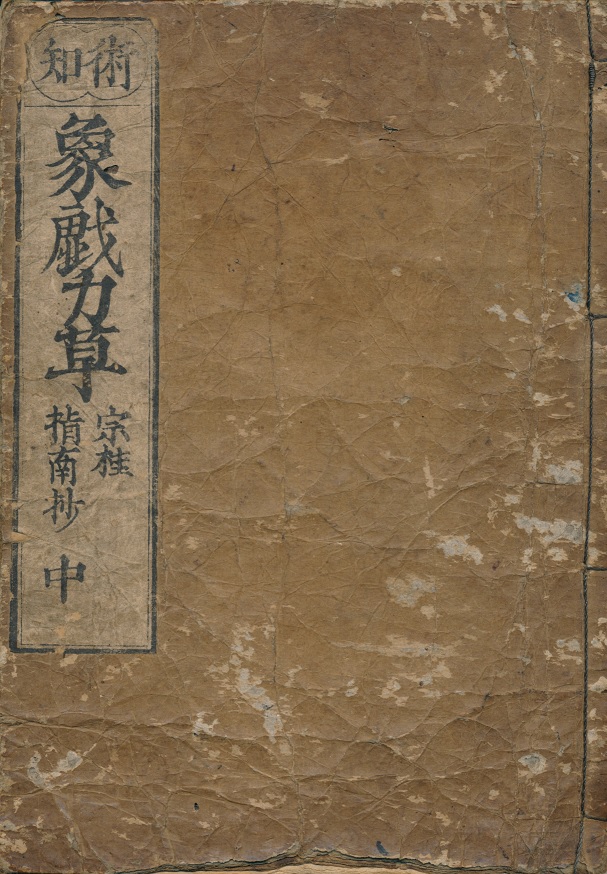 術知
象戲力草
宗桂
指南抄
中